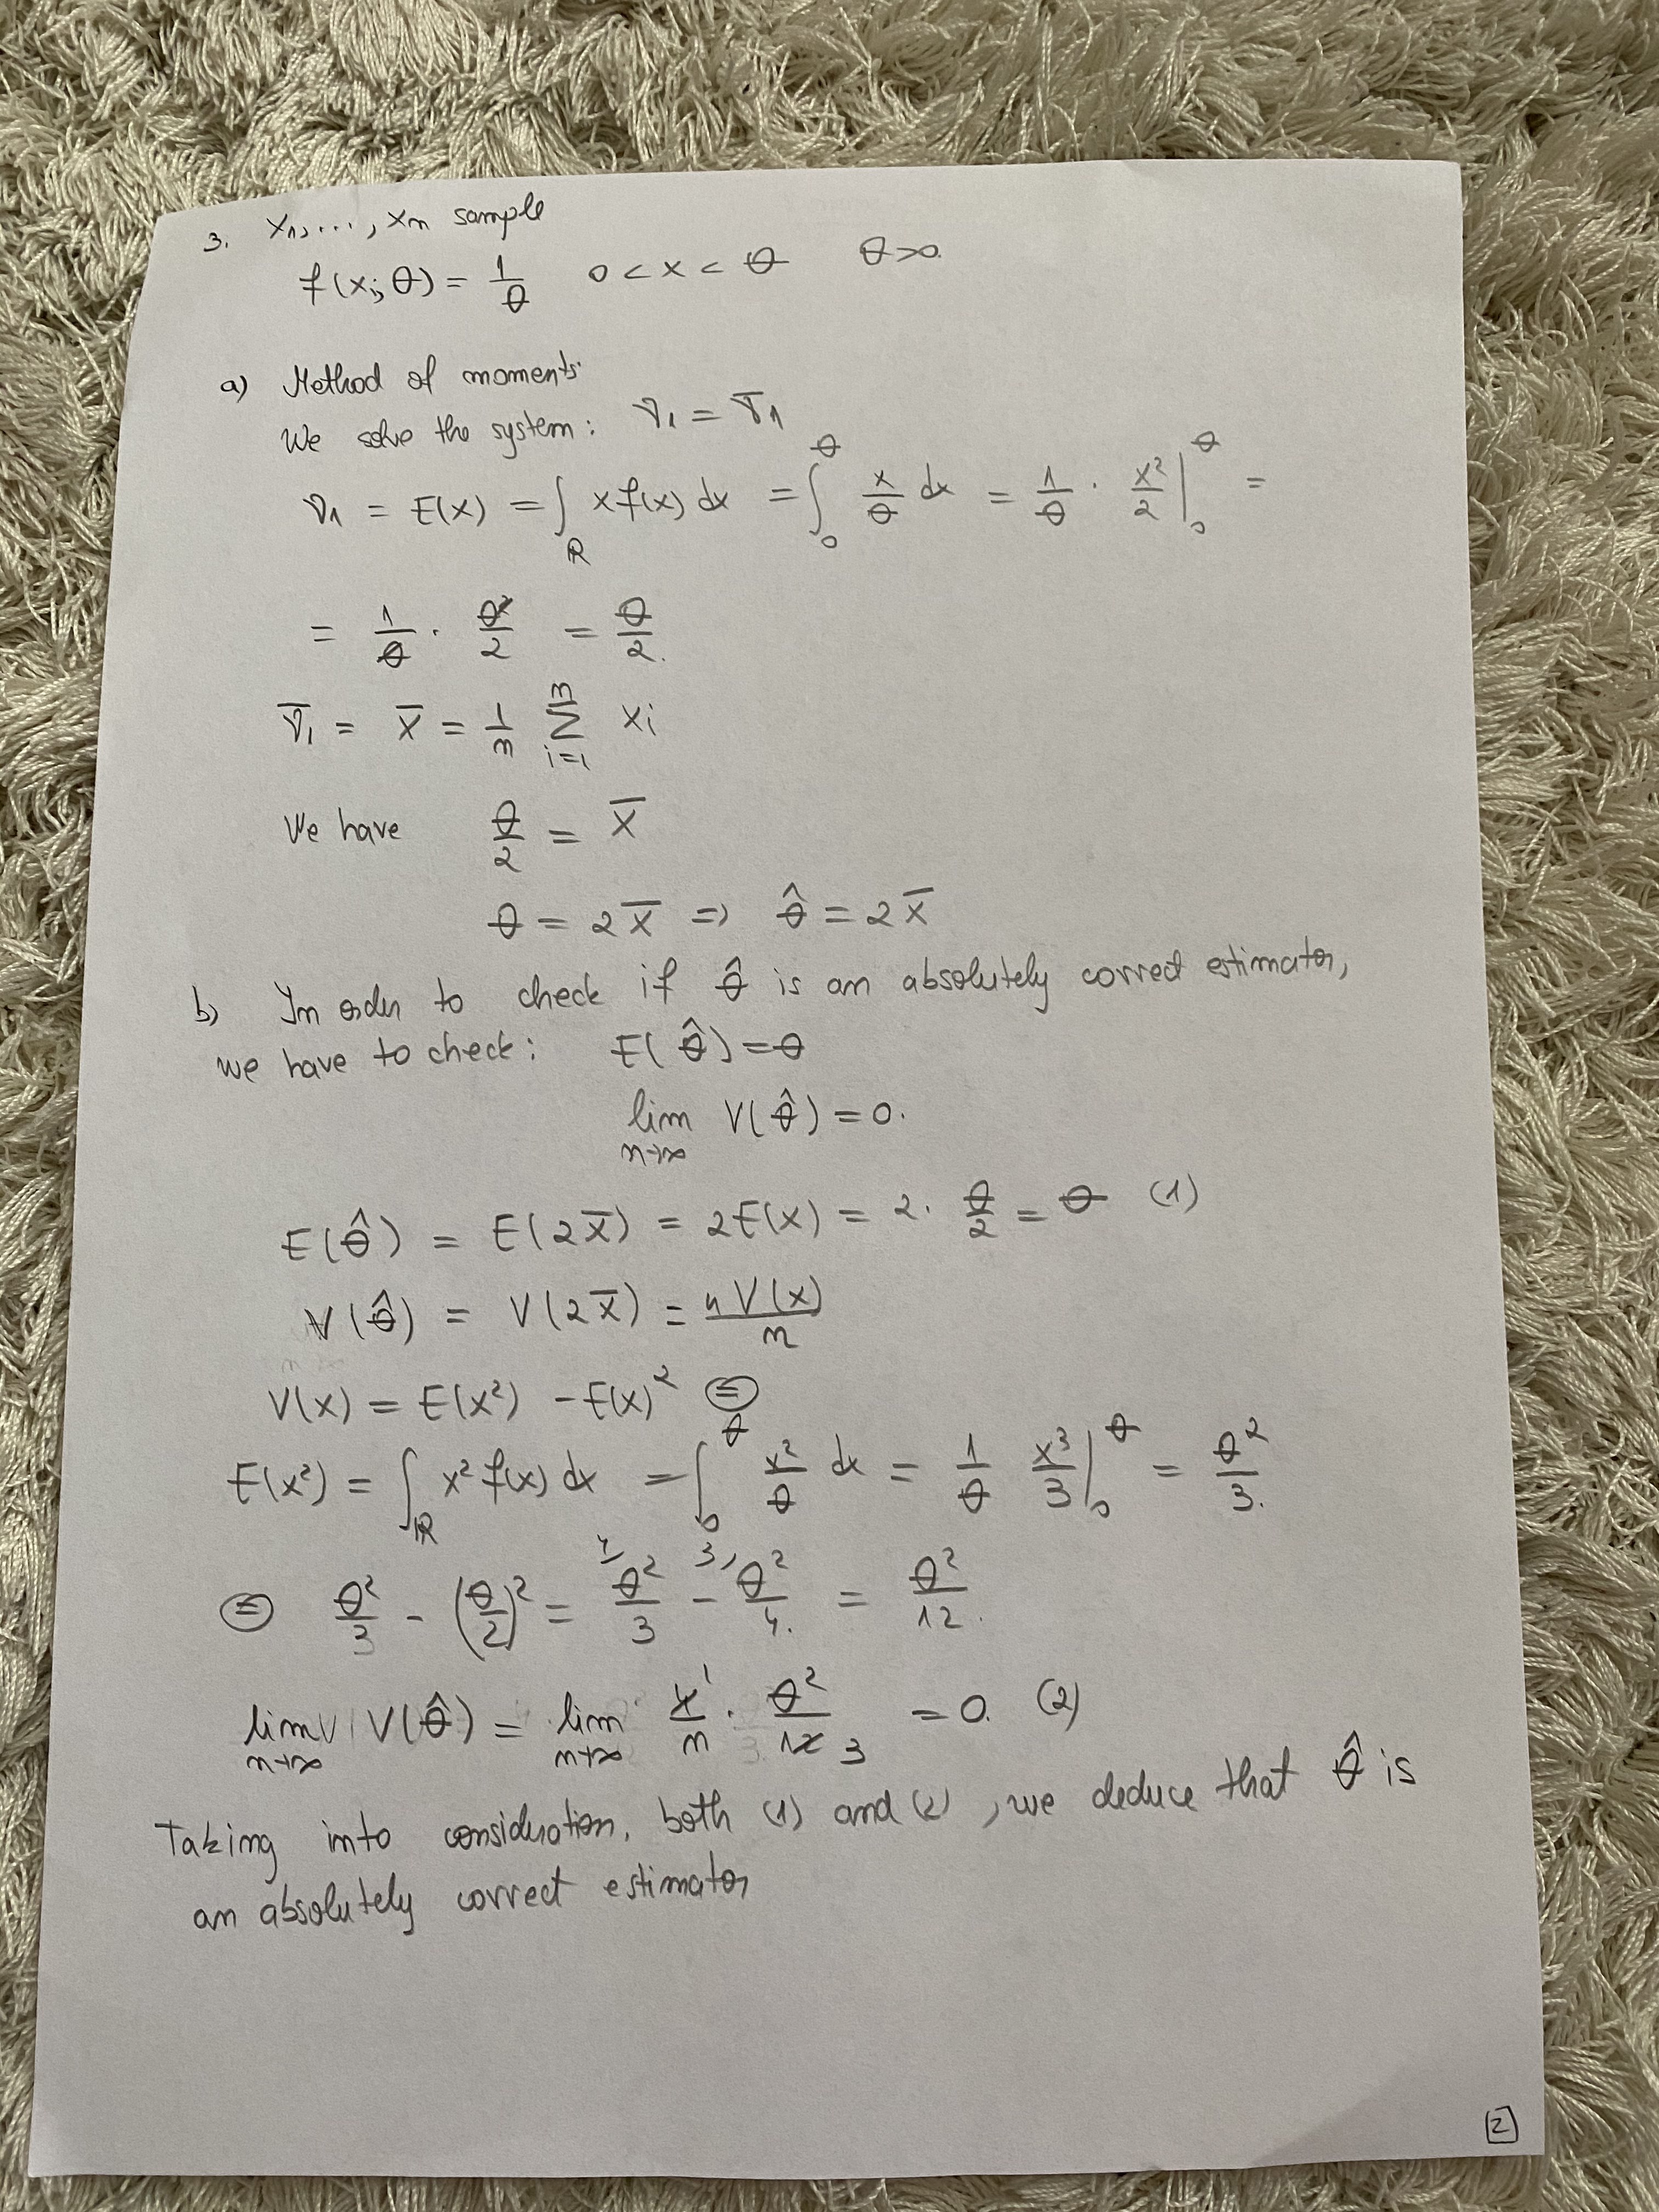 3. X₁, ..., Xn sample
f(x; θ) = 1/θ 0 < x < θ θ > 0.
a) Method of moments
We solve the system: ν₁ = ν̅₁
ν₁ = E(X) = ∫_R x f(x) dx = ∫_0^θ x/θ dx = 1/θ · x²/2 |_0^θ =
= 1/θ · θ²/2 = θ/2.
ν̅₁ = X̅ = 1/n Σ_{i=1}^n Xi
We have θ/2 = X̅
θ = 2X̅ => θ̂ = 2X̅
b) In order to check if θ̂ is an absolutely correct estimator,
we have to check: E(θ̂) = θ
lim_{n→∞} V(θ̂) = 0.
E(θ̂) = E(2X̅) = 2E(X) = 2 · θ/2 = θ (1)
V(θ̂) = V(2X̅) = 4V(X)/n
V(X) = E(X²) - E(X)² ⊜
E(X²) = ∫_R x² f(x) dx = ∫_0^θ x²/θ dx = 1/θ x³/3 |_0^θ = θ²/3.
⊜ θ²/3 - (θ/2)² = ⁴⁾θ²/3 - ³⁾θ²/4. = θ²/12.
lim_{n→∞} V(θ̂) = lim_{n→∞} 4̸ ¹/n · θ²/1̸2̸ 3 = 0. (2)
Taking into consideration, both (1) and (2), we deduce that θ̂ is
an absolutely correct estimator
2